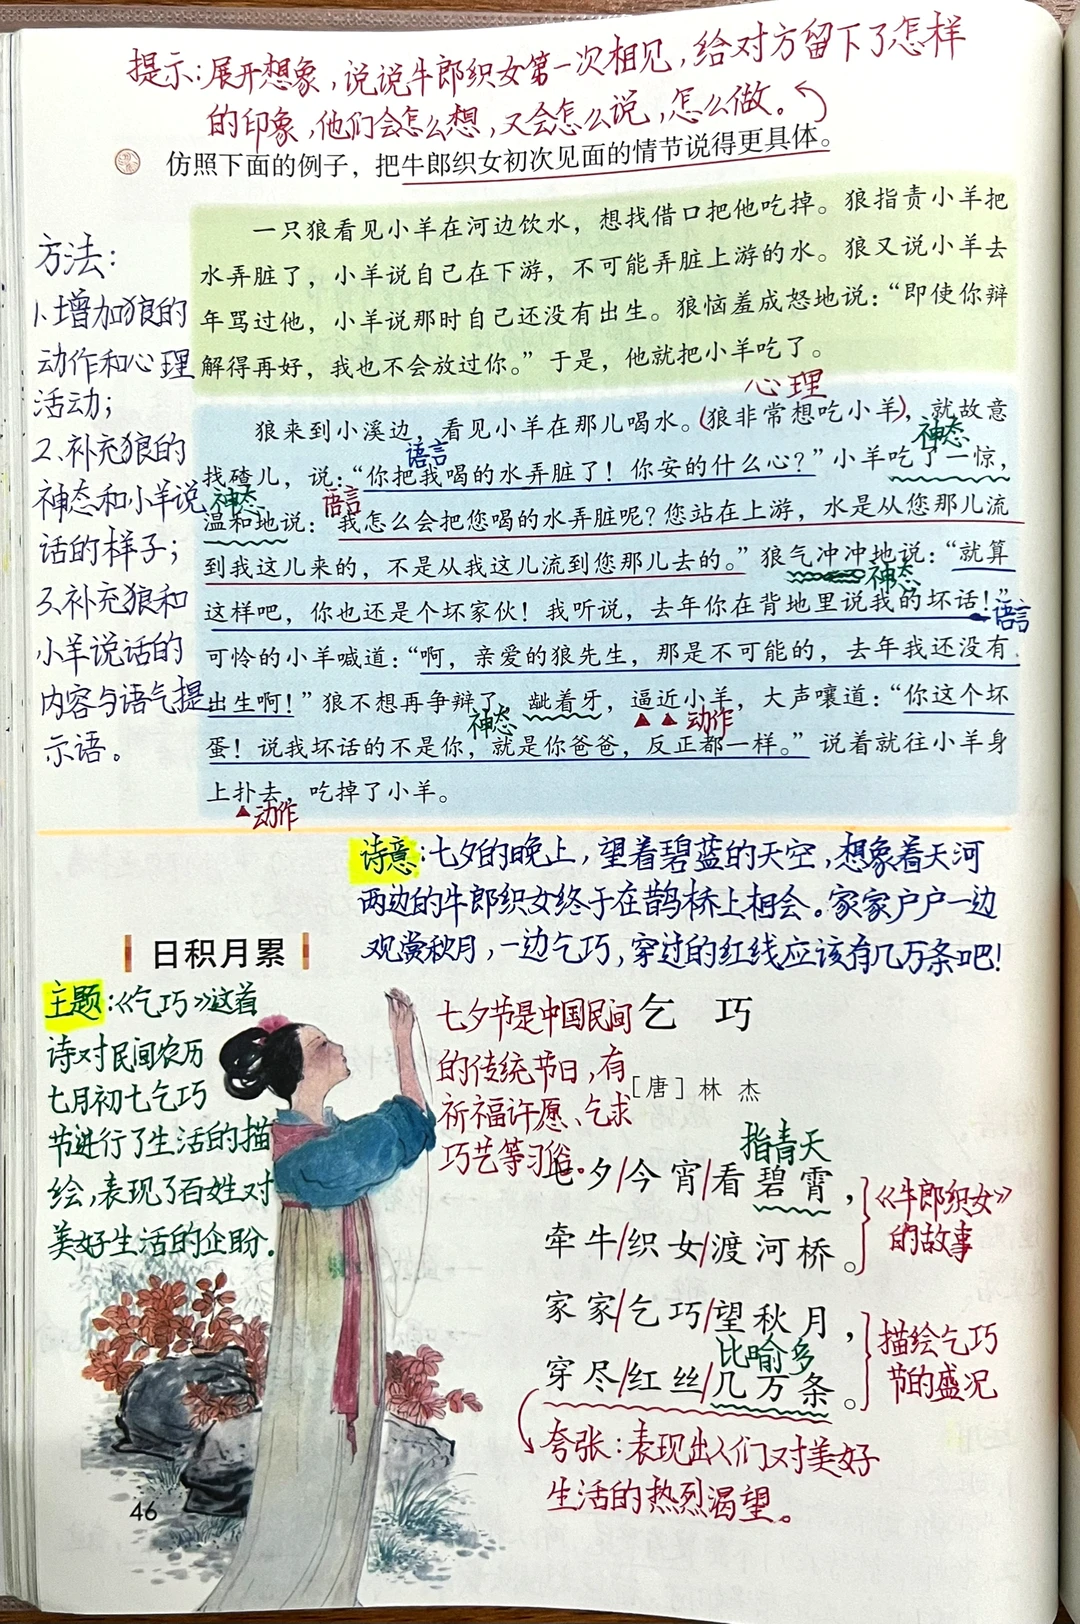 提示:展开想象,说说牛郎织女第一次相见,给对方留下了怎样
的印象,他们会怎么想,又会怎么说,怎么做。
仿照下面的例子，把牛郎织女初次见面的情节说得更具体。
一只狼看见小羊在河边饮水，想找借口把他吃掉。狼指责小羊把
水弄脏了，小羊说自己在下游，不可能弄脏上游的水。狼又说小羊去
年骂过他，小羊说那时自己还没有出生。狼恼羞成怒地说：“即使你辩
解得再好，我也不会放过你。”于是，他就把小羊吃了。
方法:
1.增加狼的
动作和心理
活动;
2.补充狼的
神态和小羊说
话的样子;
3.补充狼和
小羊说话的
内容与语气提
示语。
心理
狼来到小溪边，看见小羊在那儿喝水。(狼非常想吃小羊)，就故意
语言
神态
找碴儿，说：“你把我喝的水弄脏了！你安的什么心？”小羊吃了一惊，
神态
语言
温和地说：“我怎么会把您喝的水弄脏呢？您站在上游，水是从您那儿流
到我这儿来的，不是从我这儿流到您那儿去的。”狼气冲冲地说：“就算
神态
这样吧，你也还是个坏家伙！我听说，去年你在背地里说我的坏话！”
语言
可怜的小羊喊道：“啊，亲爱的狼先生，那是不可能的，去年我还没有
出生啊！”狼不想再争辩了，龇着牙，逼近小羊，大声嚷道：“你这个坏
神态
动作
蛋！说我坏话的不是你，就是你爸爸，反正都一样。”说着就往小羊身
上扑去，吃掉了小羊。
动作
诗意:七夕的晚上,望着碧蓝的天空,想象着天河
两边的牛郎织女终于在鹊桥上相会。家家户户一边
观赏秋月,一边乞巧,穿过的红线应该有几万条吧!
日积月累
主题:《乞巧》这首
诗对民间农历
七月初七乞巧
节进行了生活的描
绘,表现了百姓对
美好生活的企盼.
七夕节是中国民间
的传统节日,有
祈福许愿、乞求
巧艺等习俗。
乞 巧
［唐］林 杰
指青天
七夕/今宵/看碧霄，
牵牛/织女/渡河桥。
《牛郎织女》
的故事
家家/乞巧/望秋月，
比喻多
穿尽/红丝/几万条。
描绘乞巧
节的盛况
夸张:表现出人们对美好
生活的热烈渴望。
46